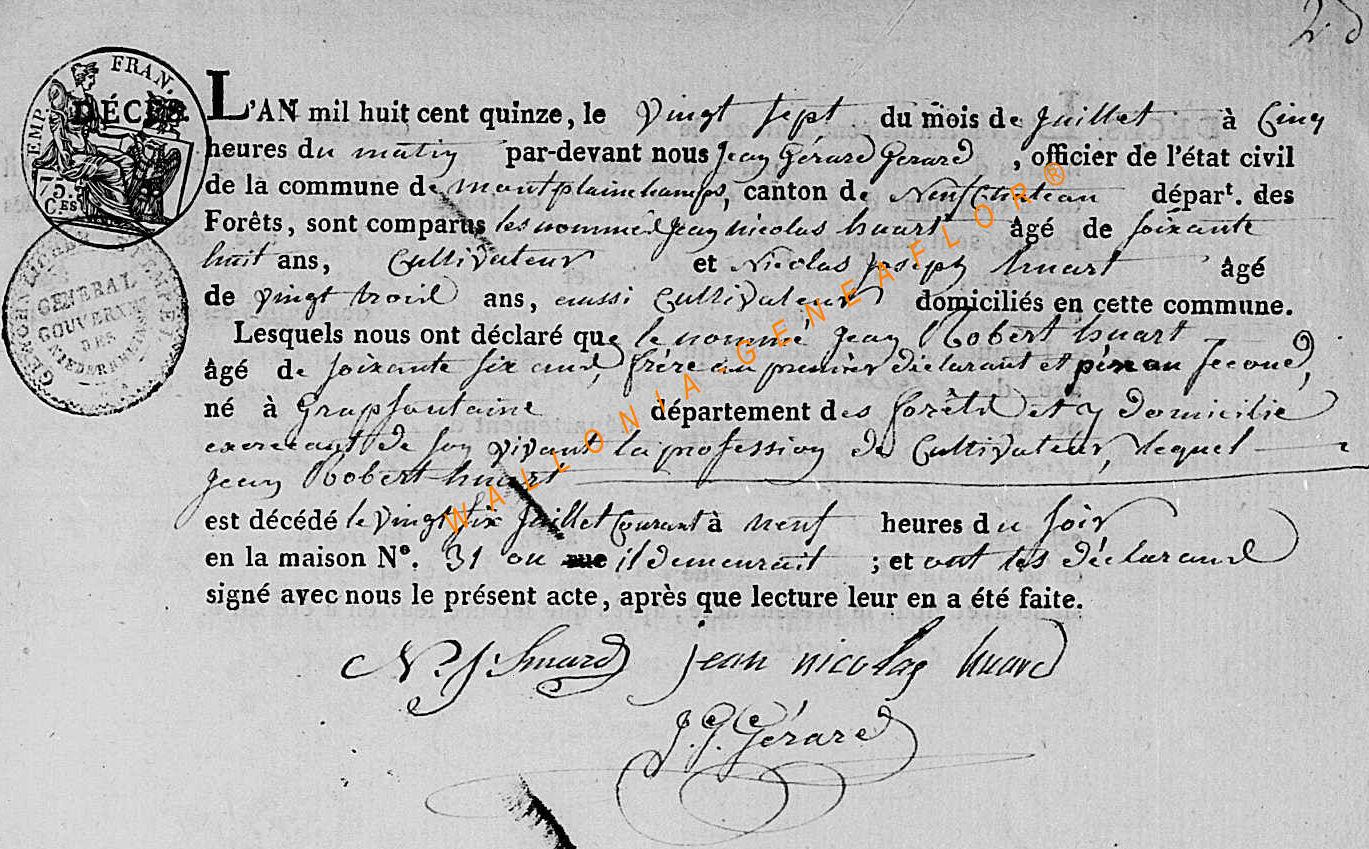 DÉCÈS.
EMP. FRAN.
75. C.ES
GENERAL
GOUVERNEM
DES
NIEDERRHEIN
L'AN mil huit cent quinze, le vingt sept du mois de juillet à Cinq
heures du matin par-devant nous Jean Gérard Gerard, officier de l'état civil
de la commune de montplainchamps, canton de Neufchateauépart. des
Forêts, sont comparus les nommés Jean nicolas huart âgé de soixante
huit ans, Cultivateur et Nicolas Joseph huart âgé
de vingt trois ans, aussi Cultivateur domiciliés en cette commune.
Lesquels nous ont déclaré que le nommé Jean Robert huart
âgé de soixante six ans, frère au premier déclarant et père au second,
né à Grapfontaine département des forêts et y domicilié
exerceant de son vivant la profession de Cultivateur, lequel
Jean Robert huart
est décédé le vingt six juillet Courant à neuf heures du soir
en la maison N°. 31 ou rue il demeurait ; et ont les déclarans
signé avec nous le présent acte, après que lecture leur en a été faite.
N. J. huard jean nicolas huard
J. G. Gérard
WALLONIA-GENEAFLOR®